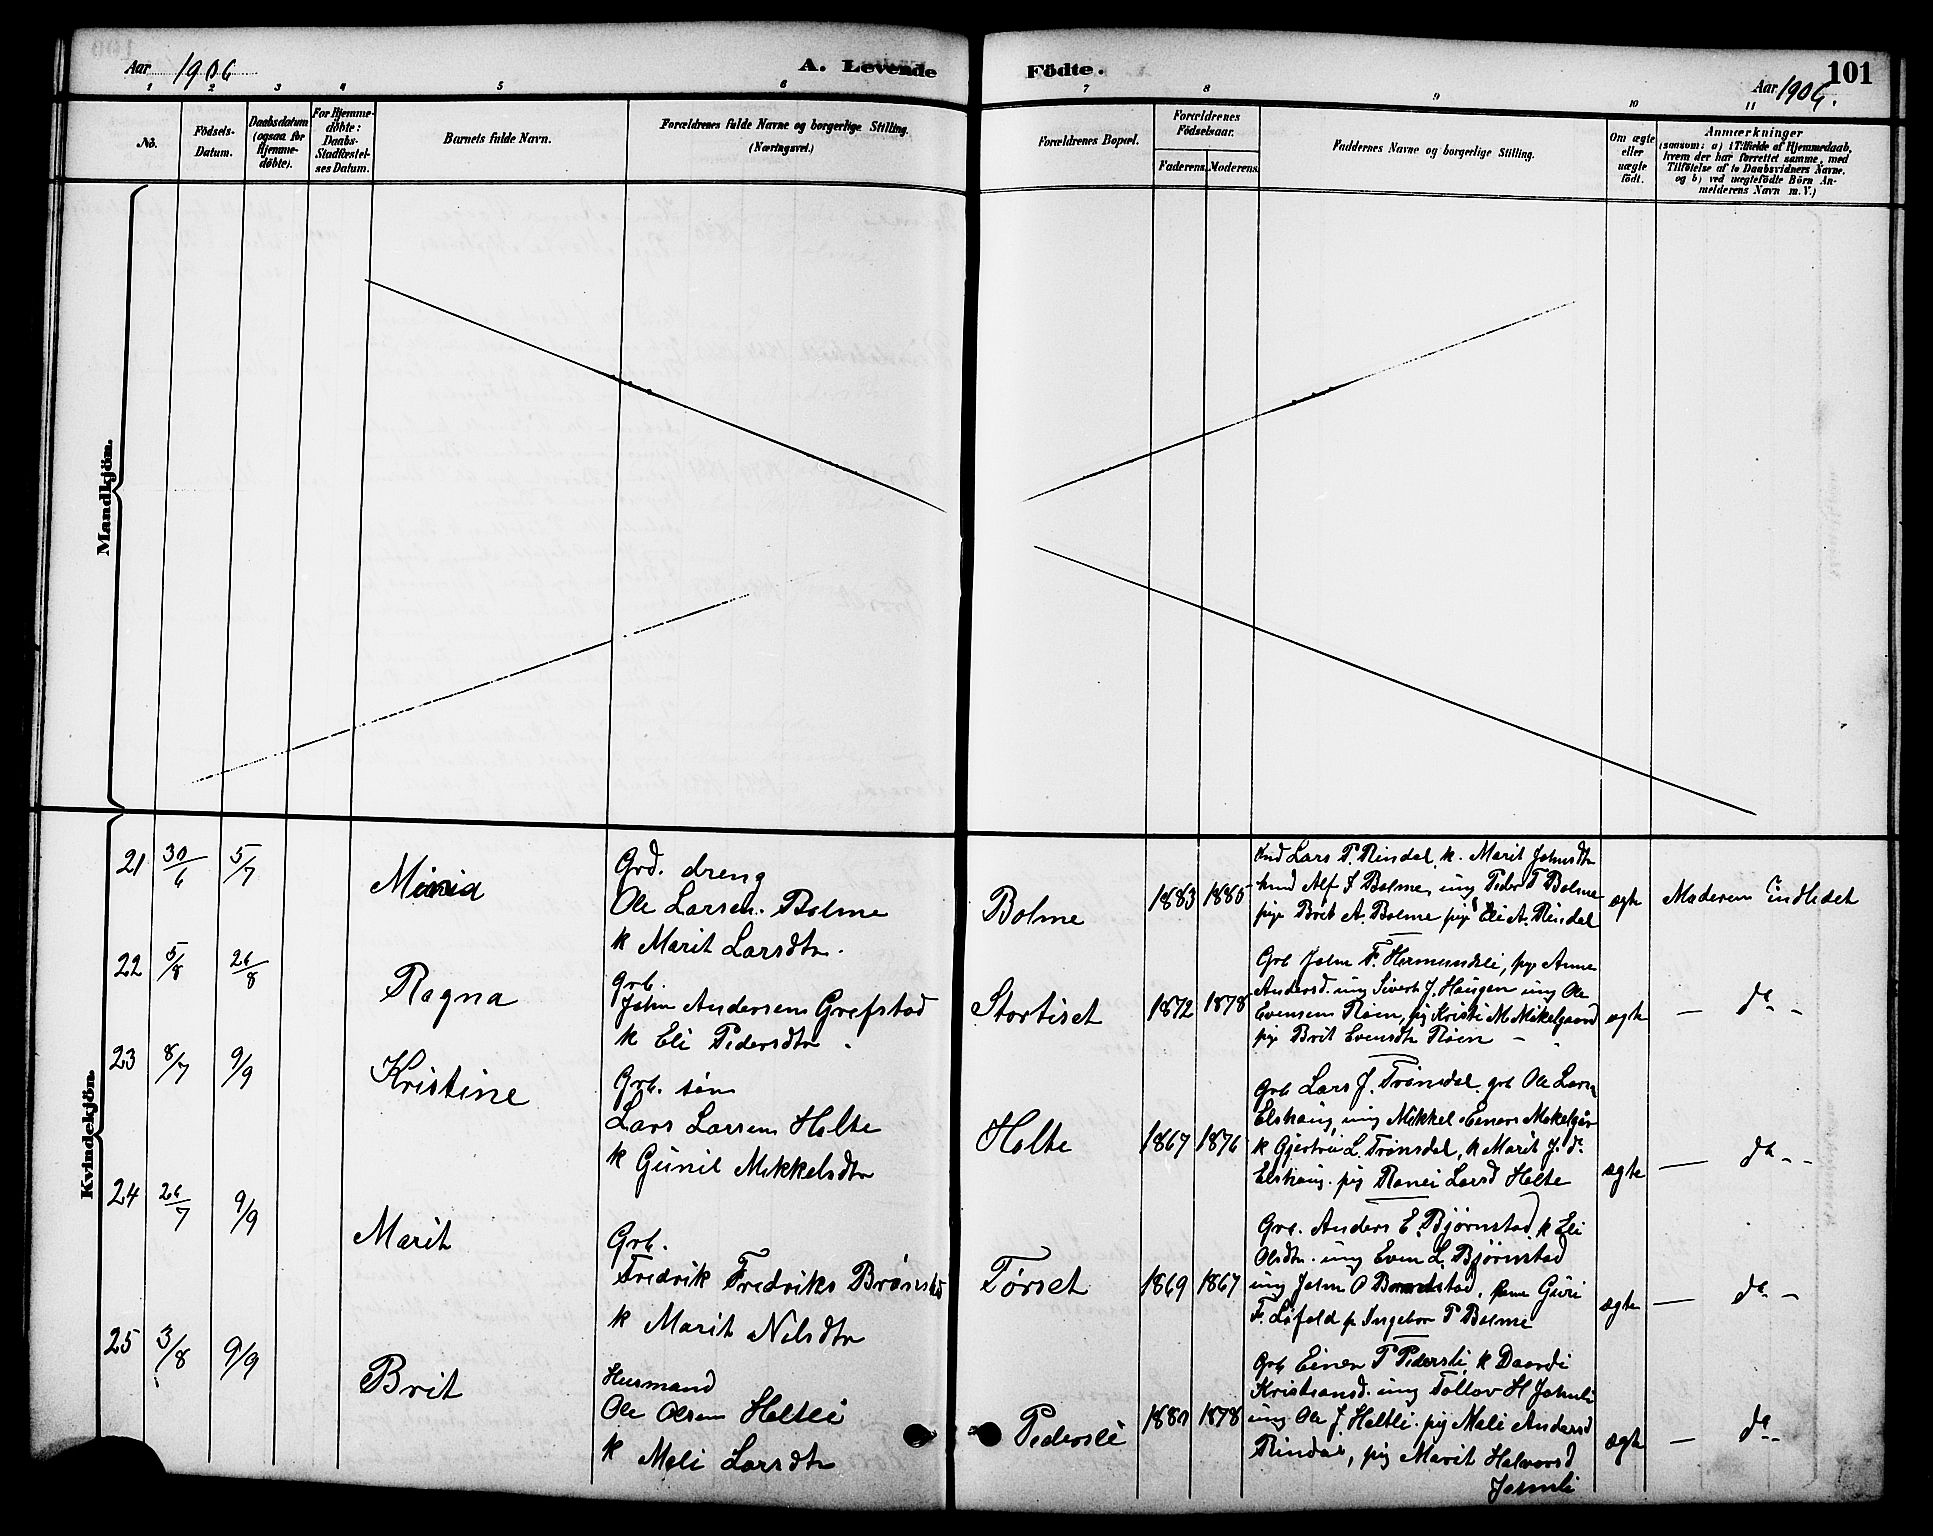 Aar 1906
A. Levende
Födte.
101
Aar 1906.
1 2 3 4 5 6 7 8 9 10 11
No.
Födsels-
Datum.
Daabsdatum
(ogsaa for
Hjemme-
døbte).
For Hjemme-
døbte:
Daabs-
Stadfæstel-
ses Datum.
Barnets fulde Navn.
Forældrenes fulde Navne og borgerlige Stilling.
(Næringsvei.)
Forældrenes Bopæl.
Forældrenes
Födselsaar.
Faderens. Moderens.
Faddernes Navne og borgerlige Stilling.
Om ægte
eller
uægte
født.
Anmærkninger
(saasom: a) i Tilfælde af Hjemmedaab,
hvem der har forrettet samme, med
Tilføielse af to Daabsvidners Navne.
og b) ved uægtefødte Börn An-
melderens Navn m. V.)
Mandkjön.
Kvindekjön.
21 30/6 5/7
Grd. dreng
Ole Larsen. Bolme
k Marit Larsdtr.
Bolme
1883 1880
Lars P. Rindal, k. Marit Johnsdtr
Alf J Bolme, ung Peder T Bolme
pige Brit A. Bolme pige Eli A. Rindal
ægte
Moderen indledet
22 5/8 26/8
Ragna
Grb.
John Andersen Grefstad
k Eli Pedersdtr.
Stortiset
1872 1878
Grb John F. Hermundsli, pige Anne
Andersd. ung Sivert J. Haugen ung Ole
Evensen Røen, pig Kristi M Mikelgaard
pige Brit Evensdtr Røen –
ægte
— do –
23 8/7 9/9
Kristine
Grb. søn
Lars Larsen Holte
k Gunil Mikkelsdtr
Holte
1867 1876
Grb Lars J. Trønsdal, grb Ole Larsen
Elshaug, ung Mikkel Einers
k Gjertrui L. Trønsdal, k Marit J. do
Elshaug. pig Ranei Larsd Holte
ægte
— do – –
24 26/7 9/9
Marit
Grb.
Fredrik Fredriks
k Marit Nilsdtr
Tørset
1869 1867
Grb. Anders E. Bjørnstad, k Eli
Olsdtr. ung Even L. Bjørnstad
ung John O
F. Løfald p Ingebor P Bolme
ægte
— do –
25 3/8 9/9
Brit
Husmand
Ole Olsen Holtli
k Mali Larsdtr
Pedersli
1880 1878
Grb Einer T Pedersli, k Daardi
Kristiansd. ung Tollov H
ung Ole J. Holtli. pig Mali Andersd
Rindal, pig Marit Halvorsd
ægte
— do –